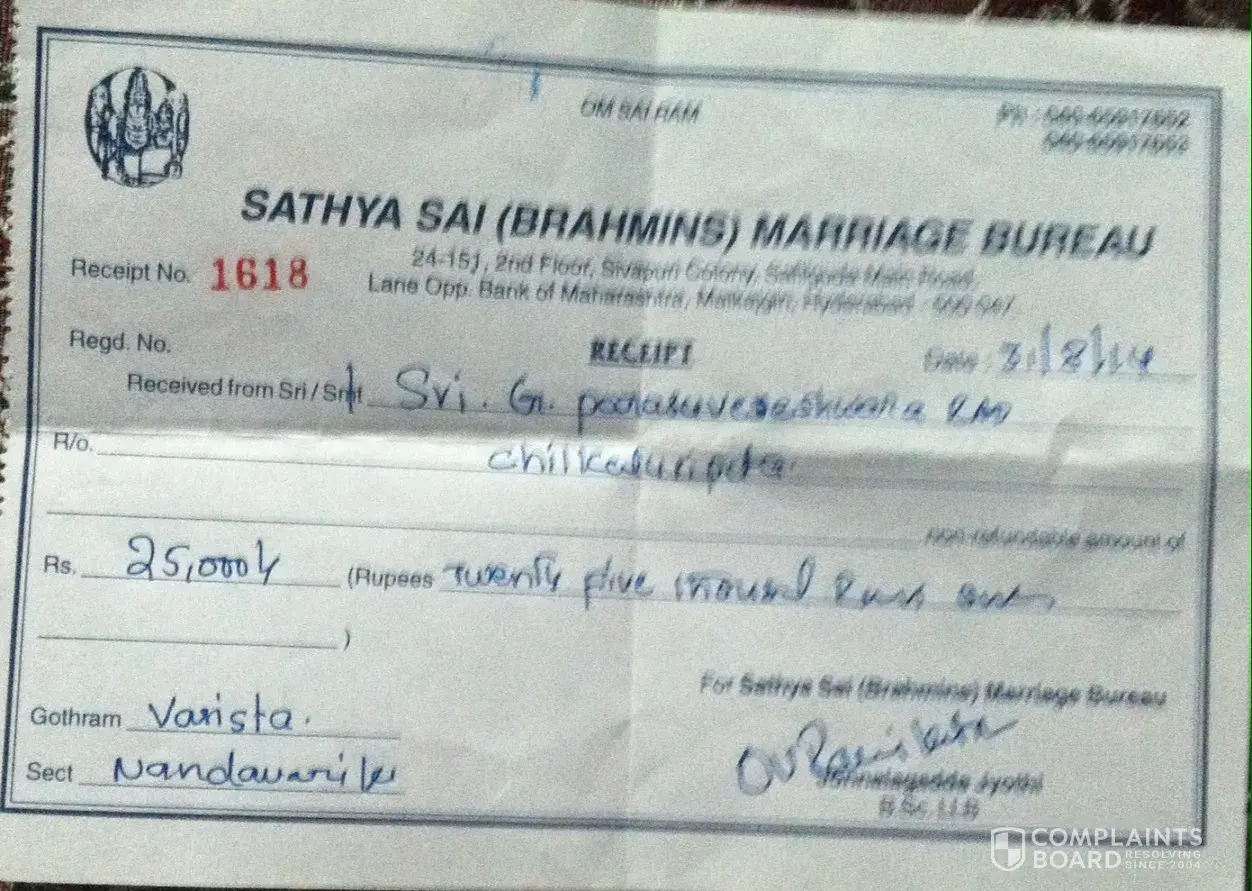 OM SAI RAM
SATHYA SAI (BRAHMINS) MARRIAGE BUREAU
Receipt No. 1618
24-151, 2nd Floor, Sivapuri Colony, Safilguda Main Road,
Lane Opp. Bank of Maharashtra, Malkajgiri, Hyderabad
Regd. No.
RECEIPT
Date : 31/8/14
Received from Sri / Smt Sri. G.
R/o.
non-refundable amount of
Rs. 25,000/- (Rupees Twenty five
)
For Sathya Sai (Brahmins) Marriage Bureau
Gothram Varista.
Sect Nandavarik
Jyothi
B.Sc. LLB
COMPLAINTS
BOARD RESOLVING
SINCE 2004